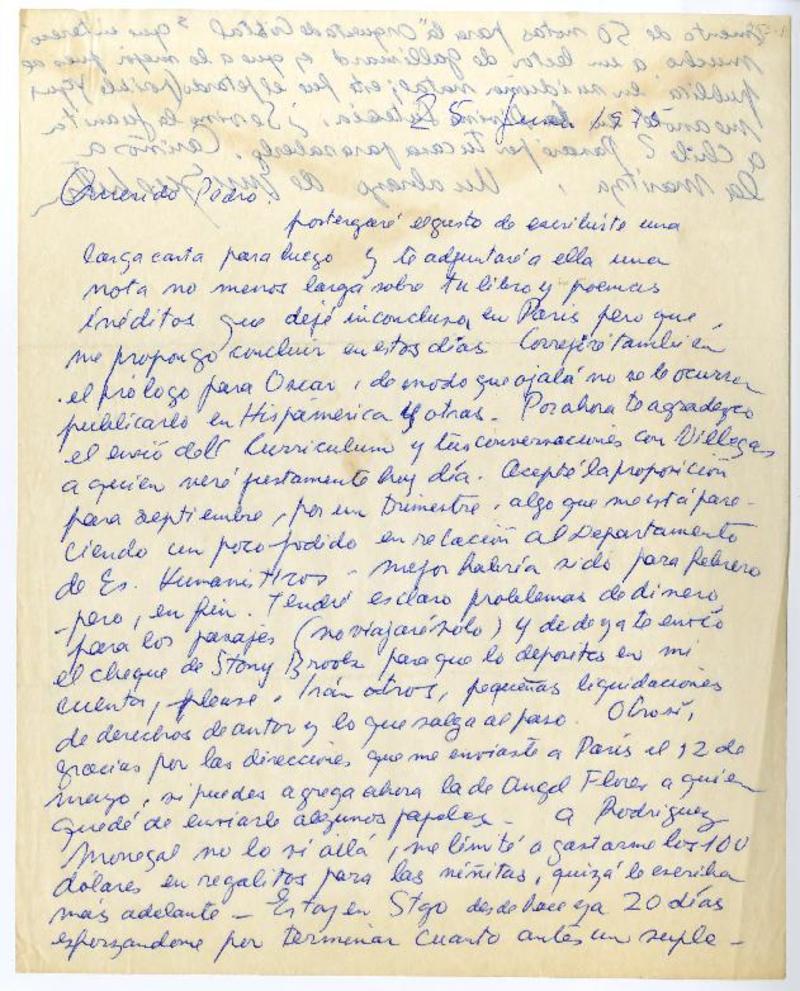 25 Junio 1975
Querido Pedro:
postergaré el gusto de escribirte una
larga carta para luego y te adjuntaré a ella una
nota no menos larga sobre tu libro y poemas
inéditos que dejé inconclusa en París pero que
me propongo concluir en estos días. Correjiré también
el prólogo para Oscar, de modo que ojalá no se le ocurra
publicarlo en Hispámerica u otras - Por ahora te agradezco
el envío del Curriculum y tus conversaciones con Villegas
a quien veré justamente hoy día. Acepté la proposición
para septiembre, por un trimestre, algo que me está pare-
ciendo un poco jodido en relación al Departamento
de Es. Humanísticos - mejor habría sido para febrero
- pero, en fin. Tendré es claro problemas de dinero
para los pasajes (no viajaré sólo) y desde ya te envío
el cheque de Stony Brook para que lo deposites en mi
cuenta, please. Irán otros, pequeñas liquidaciones
de derechos de autor y lo que salga al paso. Otrosí,
gracias por las direcciones que me enviaste a París el 12 de
mayo, si puedes agrega ahora la de Angel Flores a quien
quedé de enviarle algunos papeles - A Rodriguez
Monegal no lo vi allá, me limité a gastarme los 100
dólares en regalitos para las niñitas, quizá le escriba
más adelante - Estoy en Stgo desde hace ya 20 días
esforzandome por terminar cuanto antes un suple-